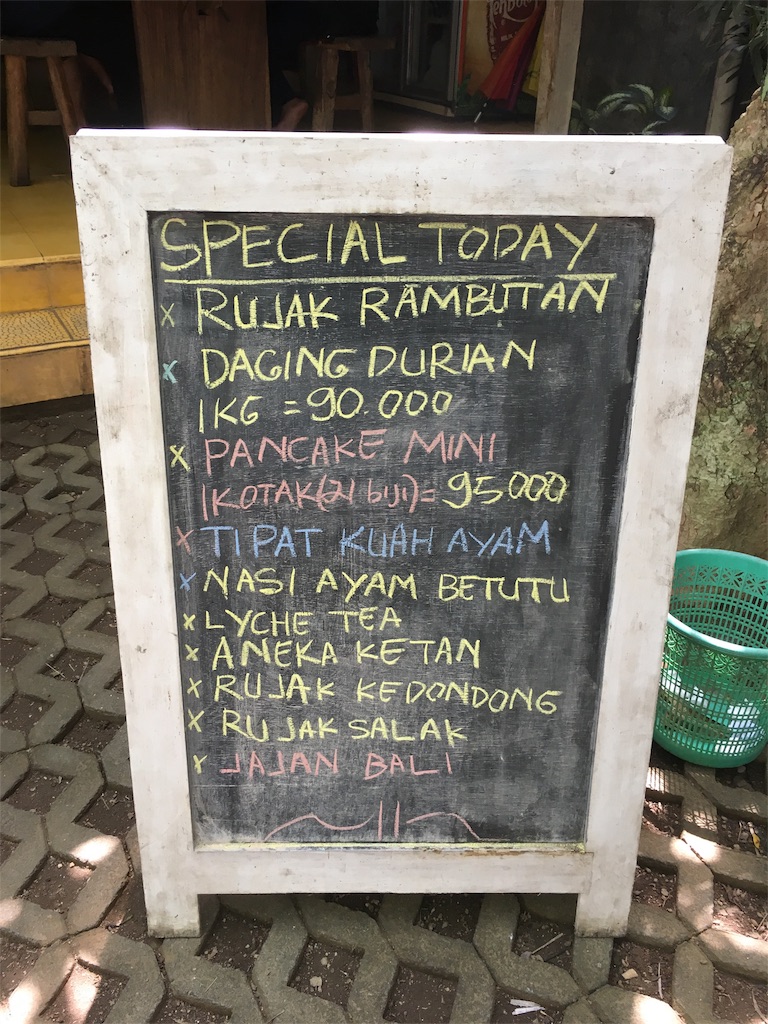 Tehbotol
SPECIAL TODAY
x RUJAK RAMBUTAN
x DAGING DURIAN
1KG = 90.000
x PANCAKE MINI
1KOTAK(21 biji)= 95000
x TIPAT KUAH AYAM
x NASI AYAM BETUTU
x LYCHE TEA
x ANEKA KETAN
x RUJAK KEDONDONG
x RUJAK SALAK
x JAJAN BALI